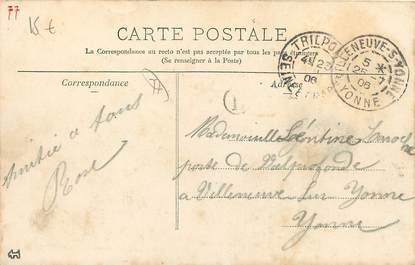 77
15 €
CARTE POSTALE
La Correspondance au recto n'est pas acceptée par tous les pays étrangers
(Se renseigner à la Poste)
Correspondance
Adresse
TRILPORT
SEINE
06
VILLENEUVE-S-YONNE
5
06
YONNE
Amitié a tous
Rose
Mademoiselle Léontine
porte de Valprofonde
a Villeneuve sur Yonne
Yonne